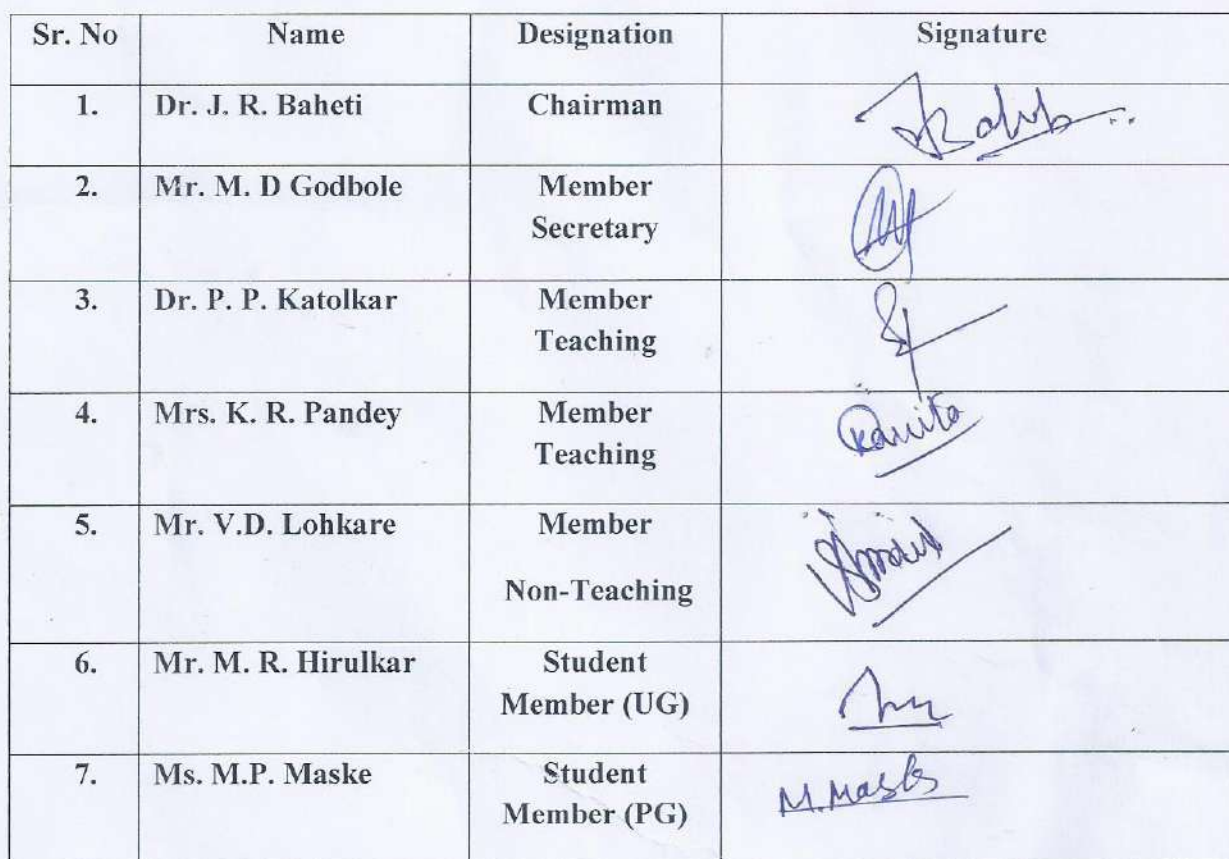 Sr. No Name Designation Signature
1. Dr. J. R. Baheti Chairman
2. Mr. M. D Godbole Member
Secretary
3. Dr. P. P. Katolkar Member
Teaching
4. Mrs. K. R. Pandey Member
Teaching
Kavita
5. Mr. V.D. Lohkare Member
Non-Teaching
6. Mr. M. R. Hirulkar Student
Member (UG)
7. Ms. M.P. Maske Student
Member (PG)
M.Maske